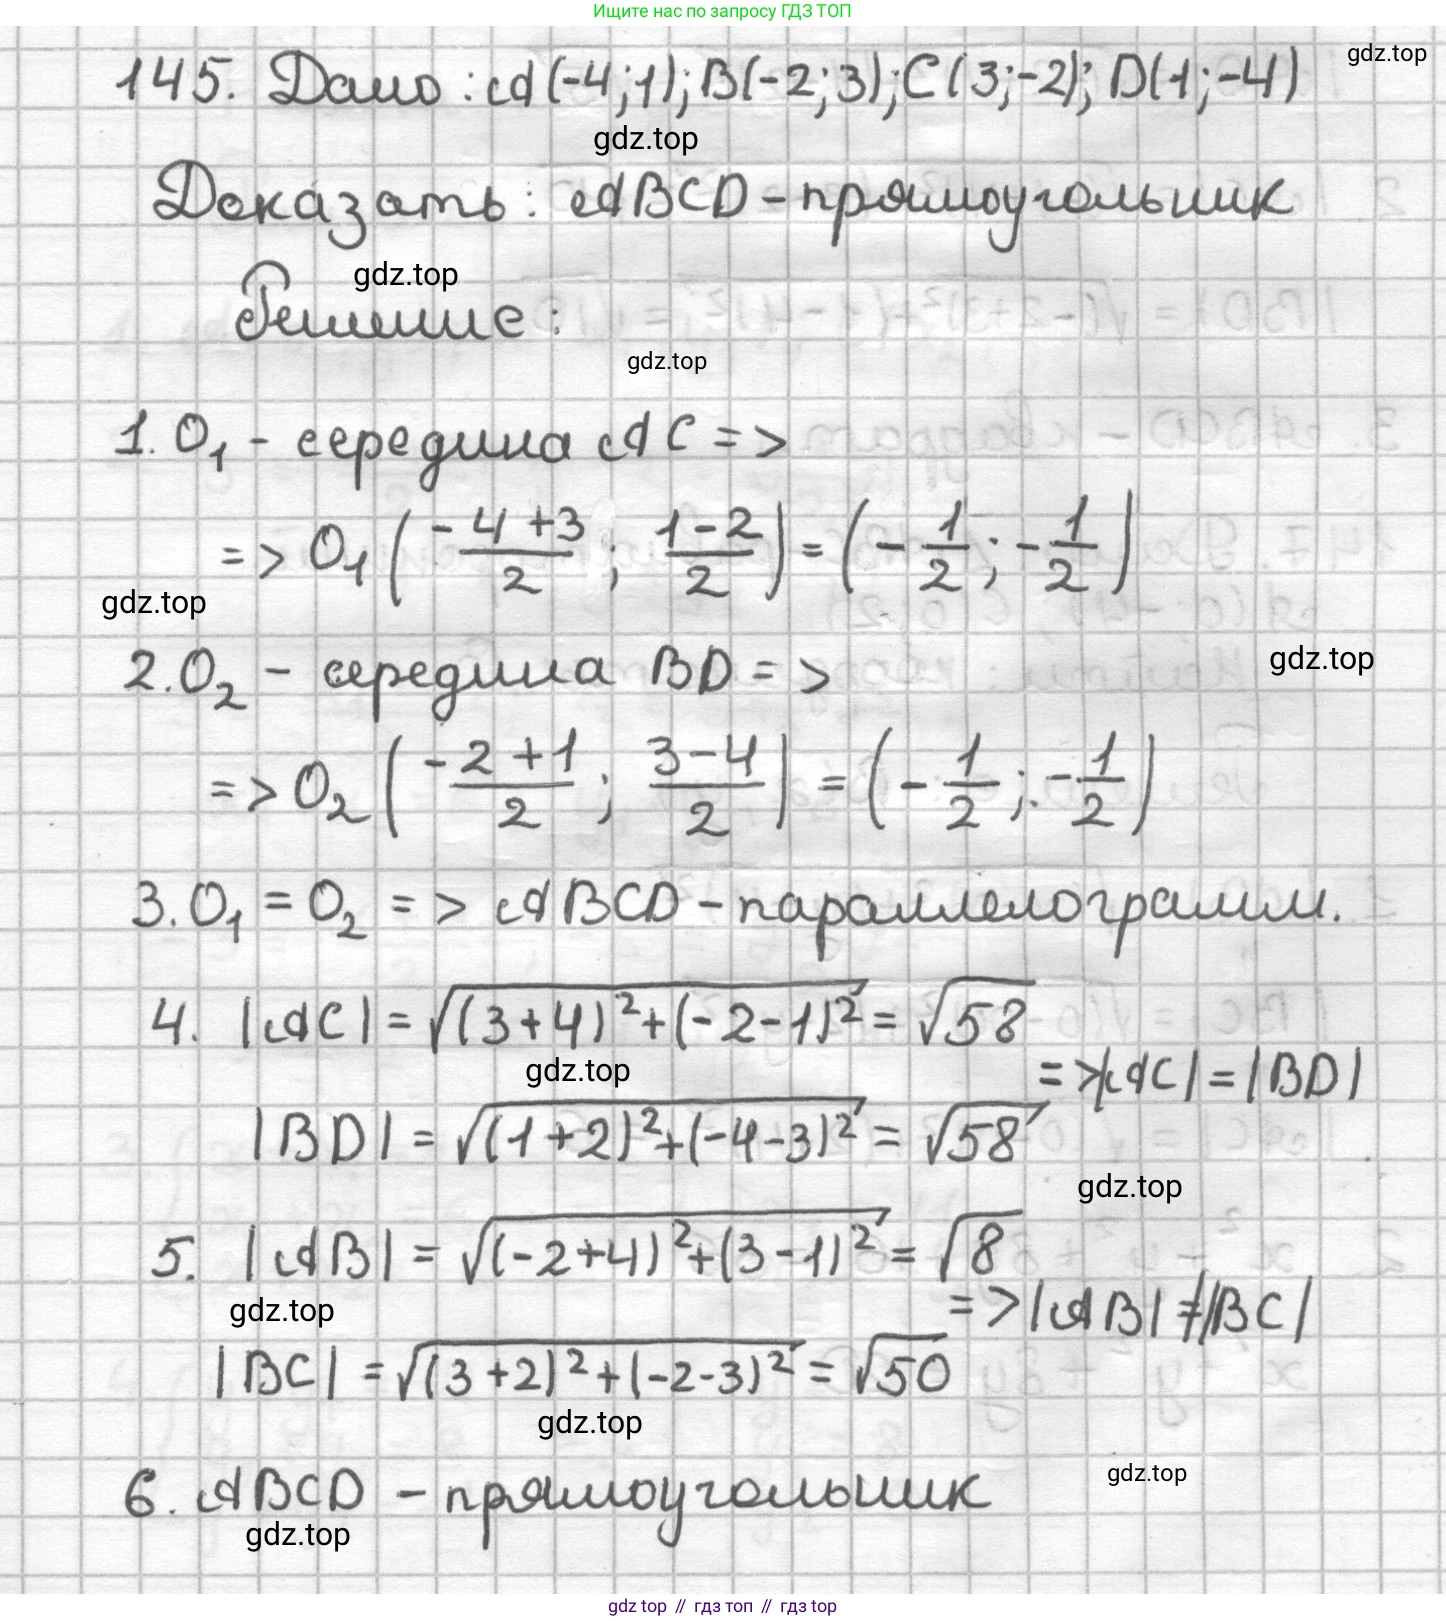 Ищите нас по запросу ГДЗ ТОП
145. Дано: A(-4;1); B(-2;3); C(3;-2); D(1;-4)
gdz.top
gdz.top
Доказать: ABCD - прямоугольник
gdz.top
Решение:
gdz.top
1. O₁ - середина AC =>
=> O₁ ( (-4+3)/2 ; (1-2)/2 ) = ( -1/2 ; -1/2 )
gdz.top
2. O₂ - середина BD =>
gdz.top
=> O₂ ( (-2+1)/2 ; (3-4)/2 ) = ( -1/2 ; -1/2 )
3. O₁ = O₂ => ABCD - параллелограмм.
4. |AC| = √((3+4)²+(-2-1)²) = √58
gdz.top
=> |AC| = |BD|
|BD| = √((1+2)²+(-4-3)²) = √58
gdz.top
5. |AB| = √((-2+4)²+(3-1)²) = √8
gdz.top
=> |AB| ≠ |BC|
|BC| = √((3+2)²+(-2-3)²) = √50
gdz.top
6. ABCD - прямоугольник
gdz.top
gdz.top
gdz top // гдз топ // гдз top